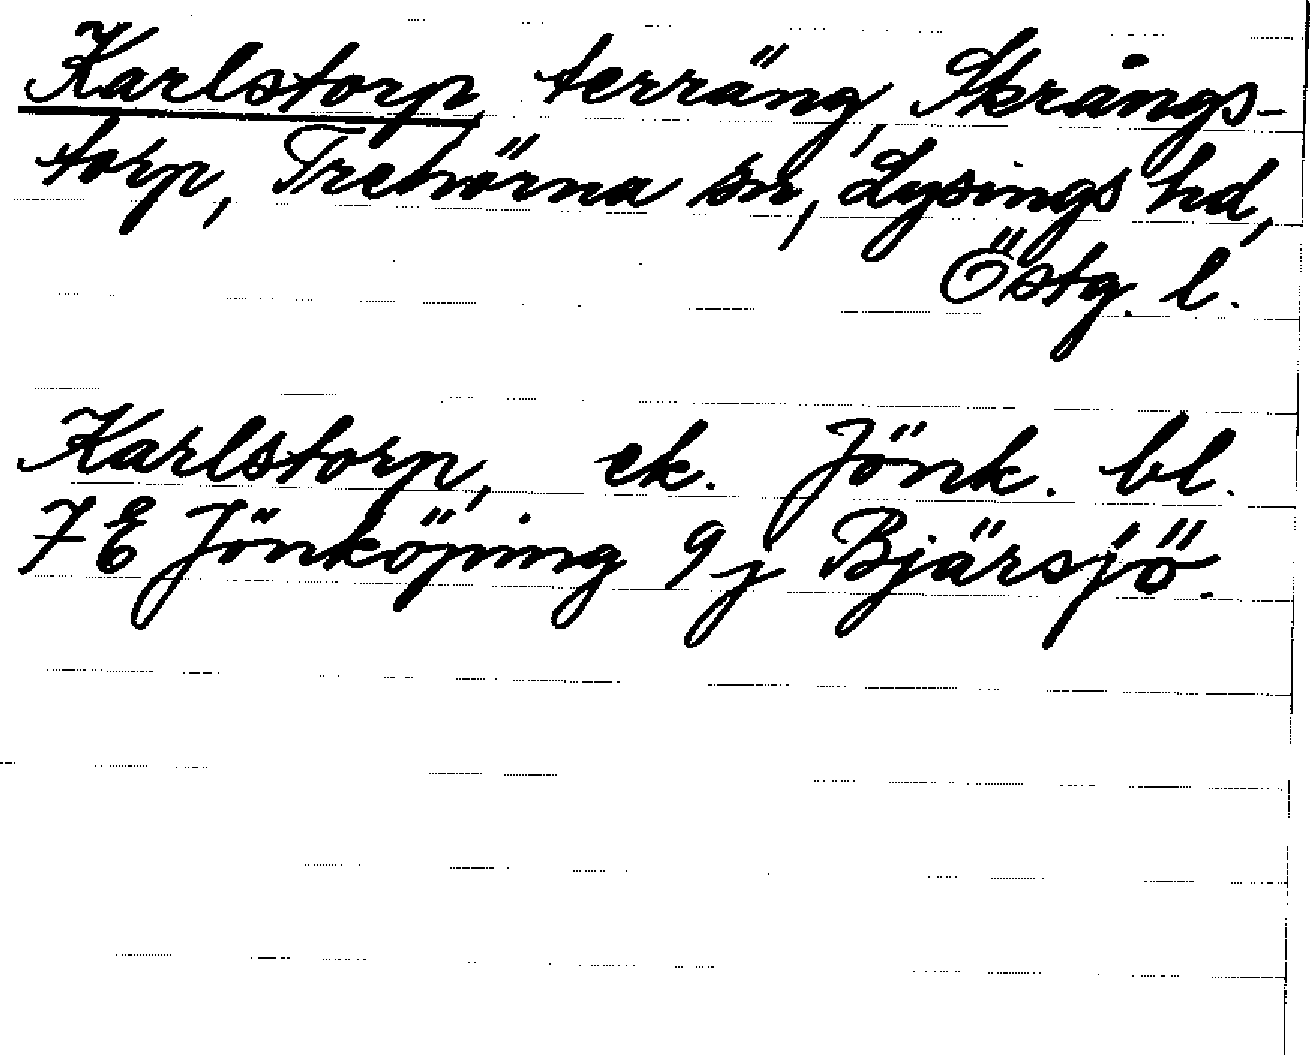 Karlstorp terräng, Skrångs-
torp, Trehörna sn, Lysings hd,
Östg. l.
Karlstorp, ek. Jönk. bl.
7E Jönköping 9j Bjärsjö.